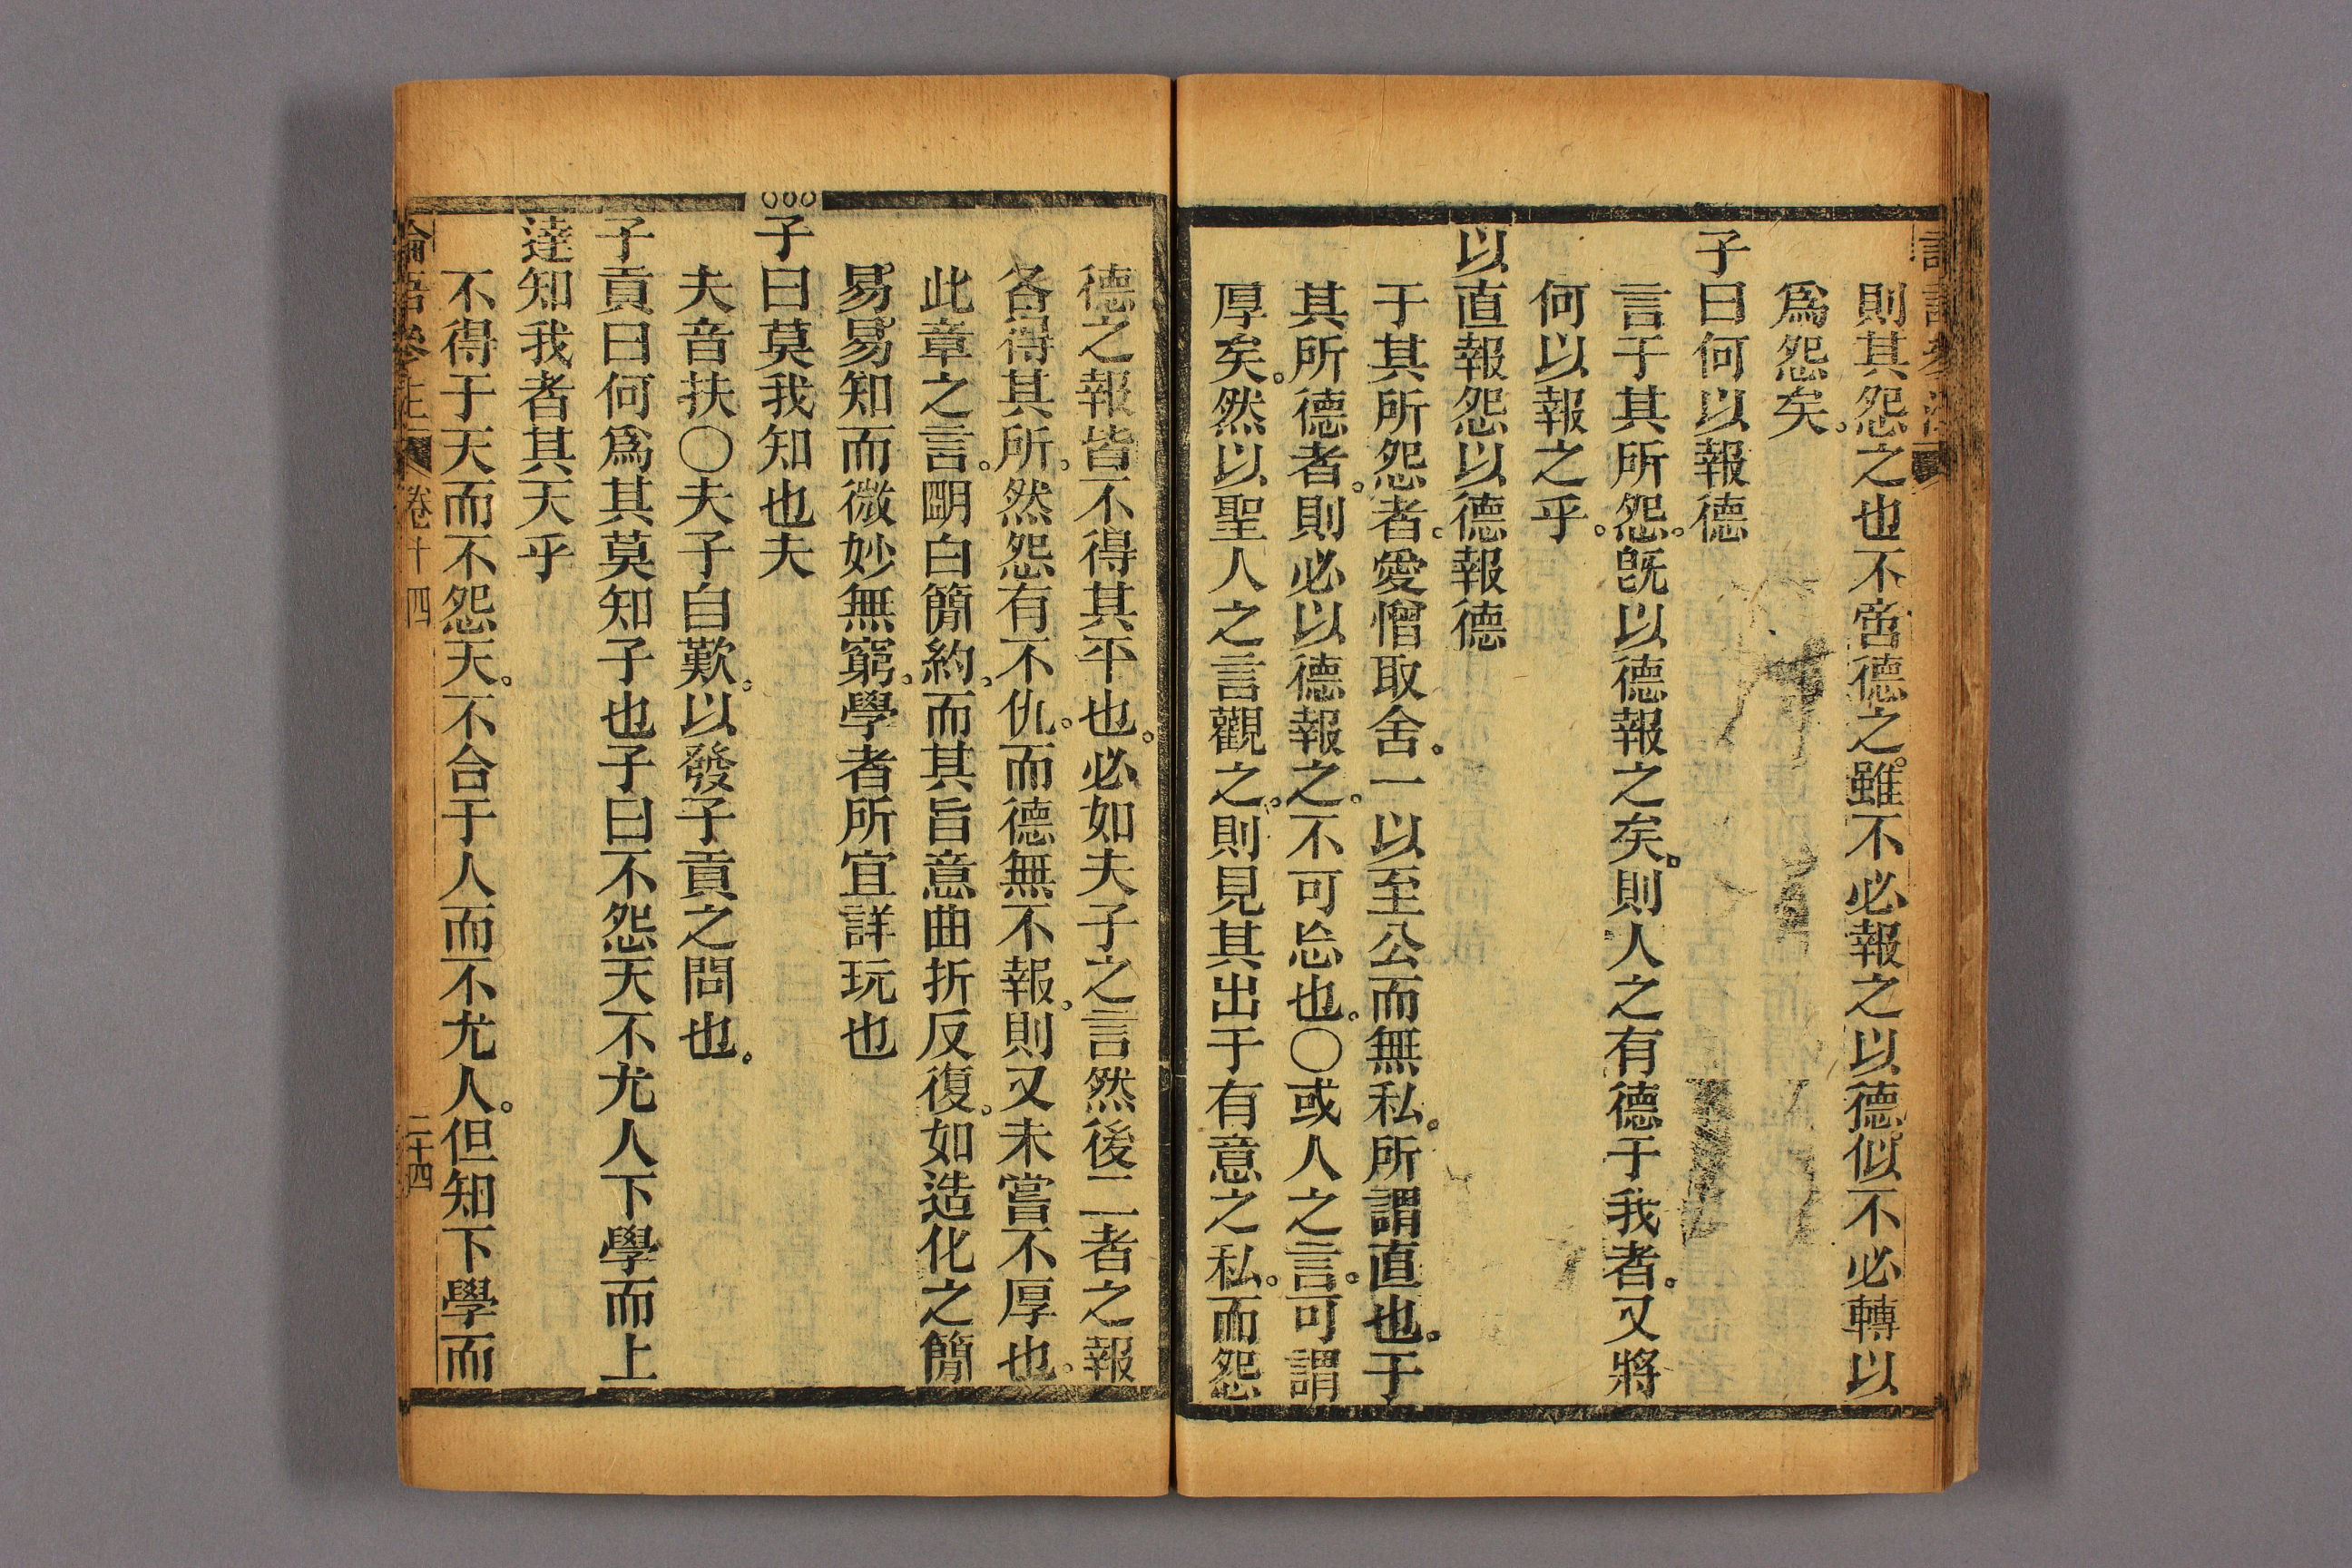 則其怨之也不啻德之。雖不必報之以德。似不必轉以
爲怨矣。
子曰何以報德
言于其所怨。旣以德報之矣。則人之有德于我者。又將
何以報之乎。
以直報怨以德報德
于其所怨者。愛憎取舍。一以至公而無私。所謂直也。于
其所德者。則必以德報之。不可忘也。○或人之言。可謂
厚矣。然以聖人之言觀之。則見其出于有意之私。而怨
德之報皆不得其平也。必如夫子之言然後二者之報
各得其所。然怨有不仇。而德無不報。則又未嘗不厚也。
此章之言。明白簡約。而其旨意曲折反復。如造化之簡
易。易知而微妙無窮。學者所宜詳玩也
○○○
子曰莫我知也夫
夫音扶○夫子自歎。以發子貢之問也。
子貢曰何爲其莫知子也子曰不怨天不尤人下學而上
達知我者其天乎
不得于天而不怨天。不合于人而不尤人。但知下學而
卷十四
二十四